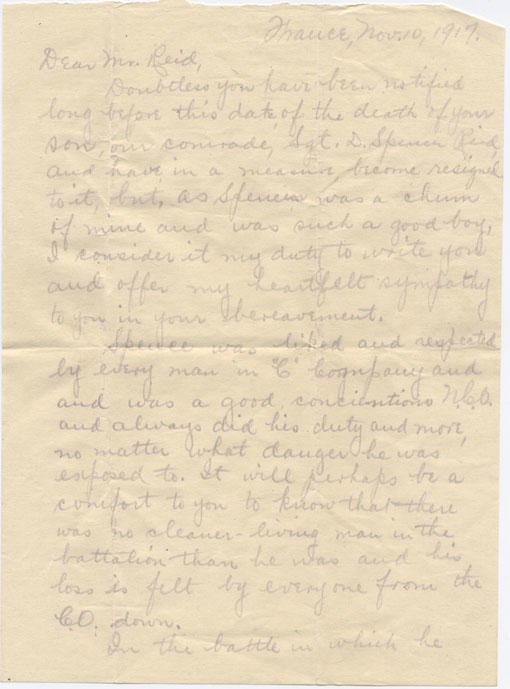 France, Nov. 10, 1917.
Dear Mr. Reid,
Doubtless you have been notified
long before this date of the death of your
son, our comrade, Sgt. D. Spencer Reid,
and have in a measure become resigned
to it, but, as Spencer was a chum
of mine and was such a good boy,
I consider it my duty to write you
and offer my heartfelt sympathy
to you in your bereavement.
Spence was liked and respected
by every man in "C" Company and
and was a good, concientious N.C.O.
and always did his duty and more,
no matter what danger he was
exposed to. It will perhaps be a
comfort to you to know that there
was no cleaner-living man in the
battalion than he was and his
loss is felt by everyone from the
C.O. down.
In the battle in which he